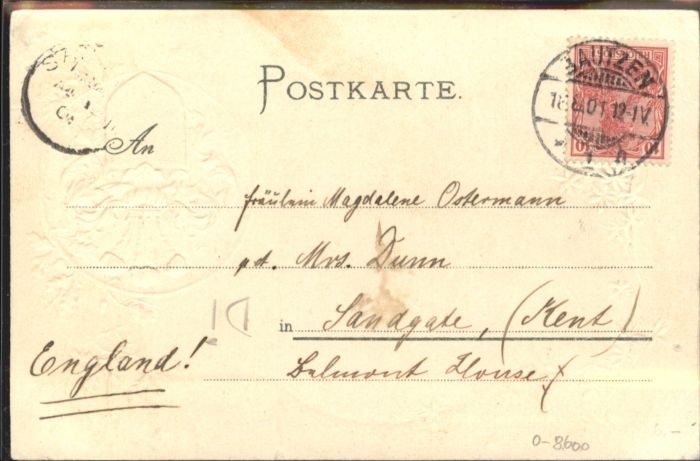 POSTKARTE.
BAUTZEN
18.8.01 12-1V.
1 a
An
fräulein Magdalene Ostermann
Mrs. Dunn
in Sandgate, (Kent)
England!
Belmont House
0-8600